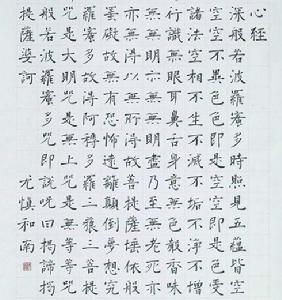 心經
深般若波羅蜜多時照見五蘊皆空
空不異色色即是空空即是色受
諸法空相不生不滅不垢不淨不增
行識無眼耳鼻舌身意無色聲香味
無無明亦無無明盡乃至無老死亦
亦無得以無所得故菩提薩埵依
罣礙故無有恐怖遠離顛倒夢想究
羅蜜多故得阿耨多羅三藐三菩提
咒是大明咒是無上咒是無等等咒
般若波羅蜜多咒即說咒曰揭諦揭
提薩婆訶
尤慎和南